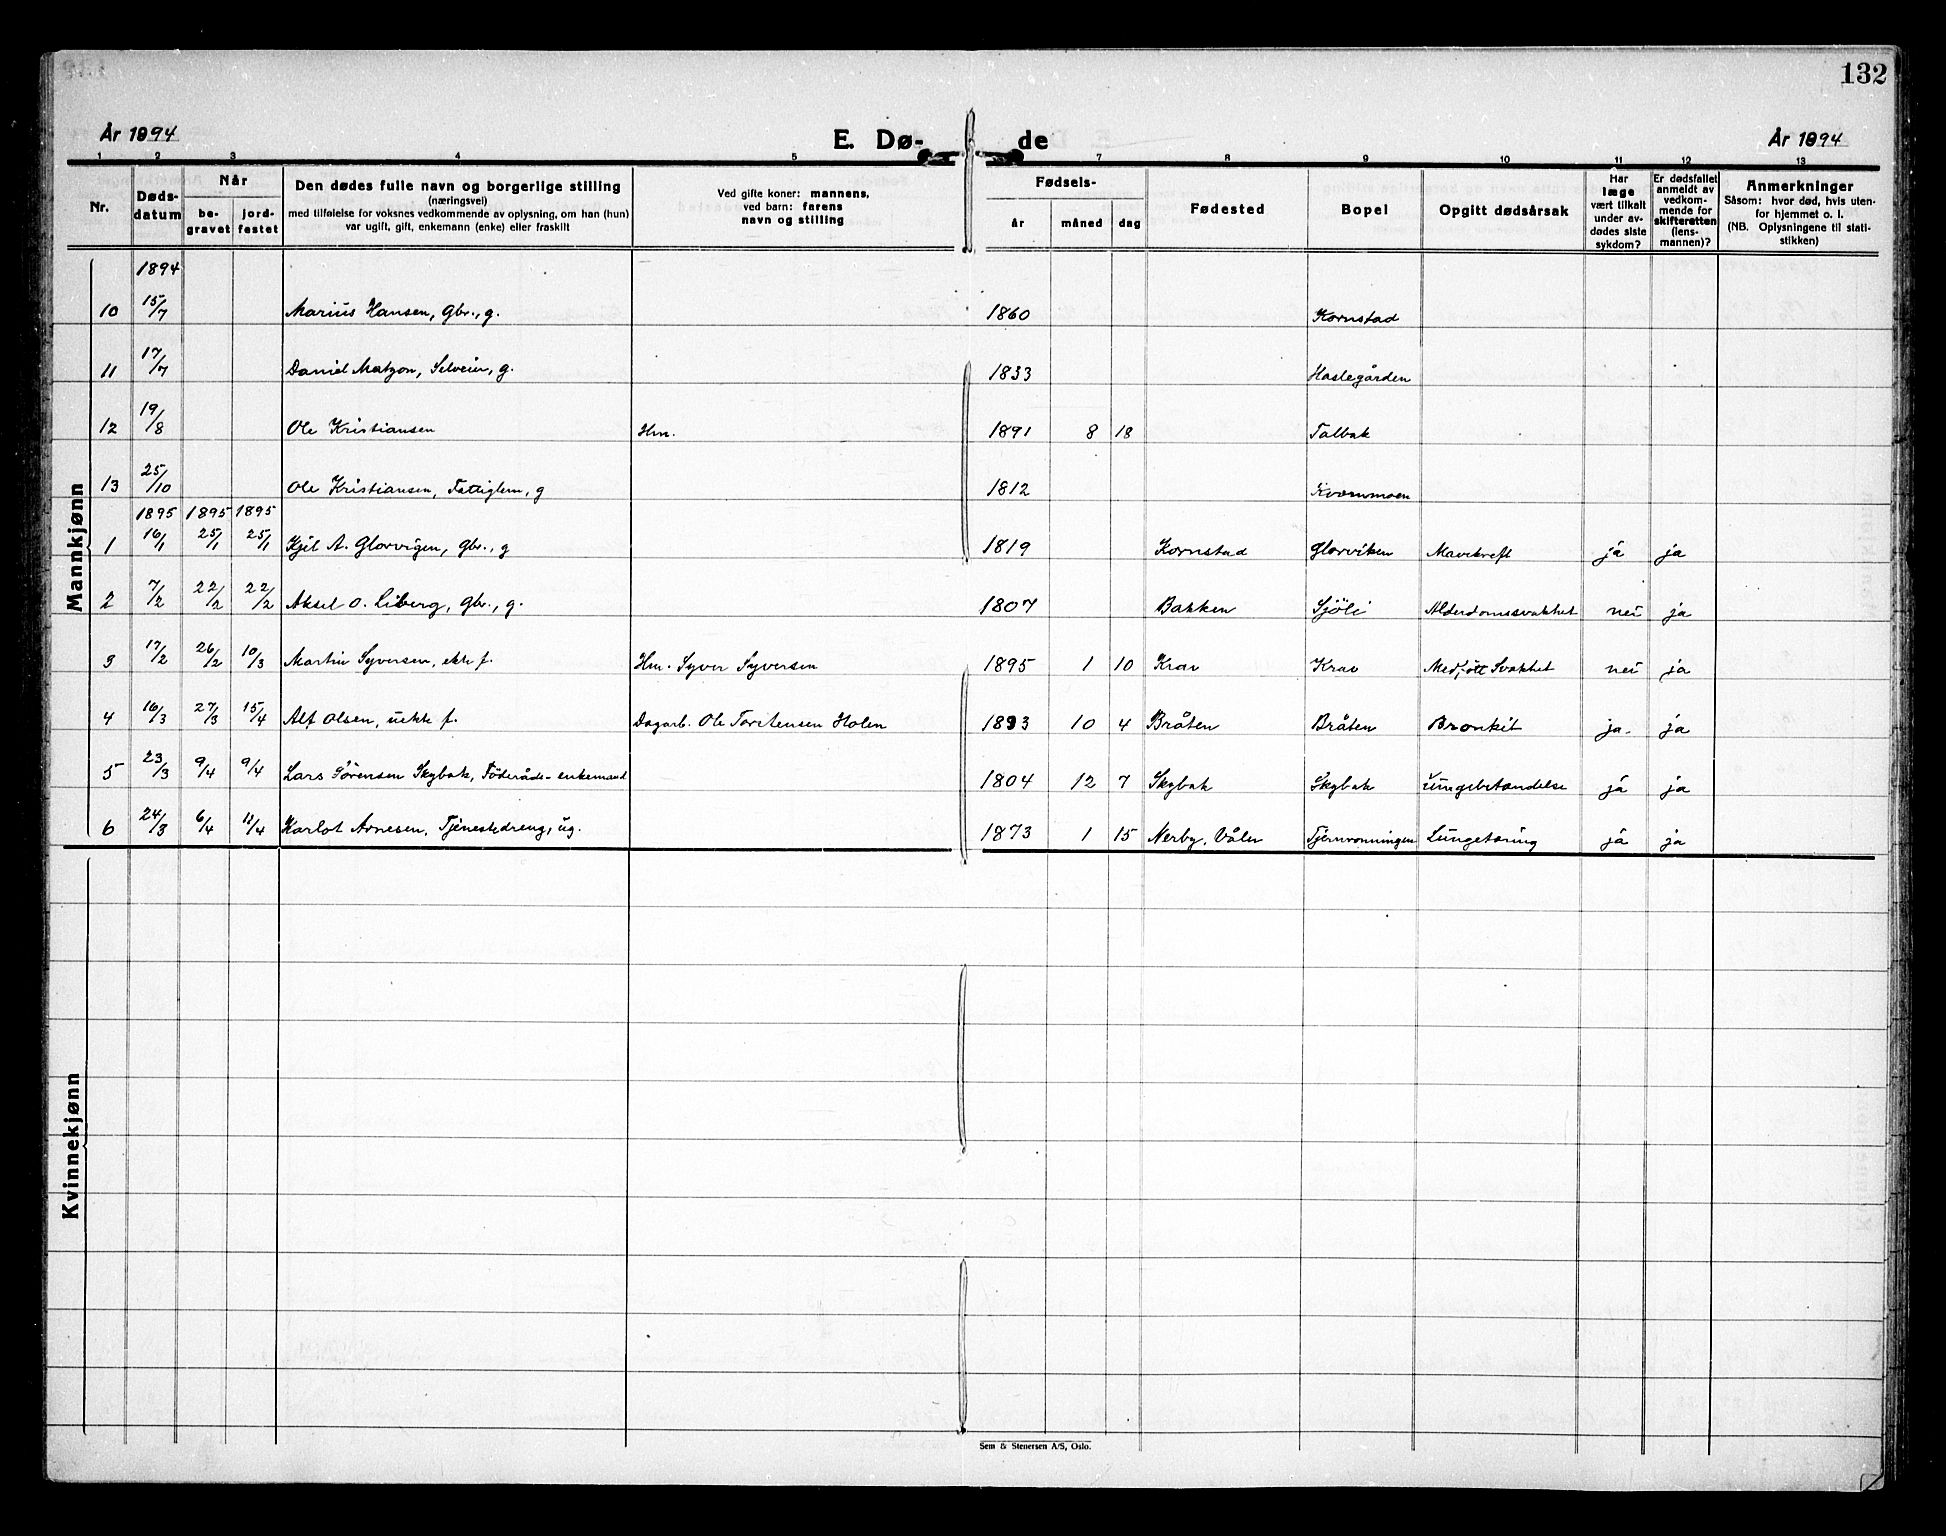 132
År 1894 E. Dø- de År 1894
1 2 3 4 5 7 8 9 10 11 12 13
Nr.
Døds-
datum
Når
be-
gravet
jord-
festet
Den dødes fulle navn og borgerlige stilling
(næringsvei)
med tilføielse for voksnes vedkommende av oplysning, om han (hun)
var ugift, gift, enkemann (enke) eller fraskilt
Ved gifte koner: mannens,
ved barn: farens
navn og stilling
Fødsels-
år måned dag
Fødested
Bopel
Opgitt dødsårsak
Har
læge
vært tilkalt
under av-
dødes siste
sykdom?
Er dødsfallet
anmeldt av
vedkom-
mende for
skifteretten
(lens-
mannen)?
Anmerkninger
Såsom: hvor død, hvis uten-
for hjemmet o. l.
(NB. Oplysningene til stati-
stikken)
Mannkjønn
1894
10 15/7 Marius Hansen, Gbr., g. 1860 Kornstad
11 17/7 Daniel Matzon, Selveier, g. 1833 Haslegården
12 19/8 Ole Kristiansen Hm. 1891 8 18 Talbak
13 25/10 Ole Kristiansen, Fattiglem, g 1812 Kvernmoen
1895 1895 1895
1 16/1 25/1 25/1 Kjel A. Glorvigen, Gbr., g 1819 Kornstad Glorviken Mavekreft ja ja
2 7/2 22/2 22/2 Aksel O. Liberg, Gbr., g. 1807 Bakken Sjöli Alderdomssvakhet nei ja
3 17/2 26/2 10/3 Martin Syversen, ekte f. Hm. Syver Syversen 1895 1 10 Krav Krav Medfött Svakhet nei ja
4 16/3 27/3 15/4 Alf Olsen, uekte f. Dagarb. Ole Torstensen Holen 1893 10 4 Bråten Bråten Bronkit ja. ja
5 23/3 9/4 9/4 Lars Sörensen Skybak, Föderåds-enkemand 1804 12 7 Skybak Skybak Lungebetændelse ja ja
6 24/3 6/4 11/4 Karlot Arnesen, Tjenestedreng, ug. 1873 1 15 Nerby, Våler Tjernrønningen Lungetæring ja ja
Kvinnekjønn
Sem & Stenersen A/S, Oslo.